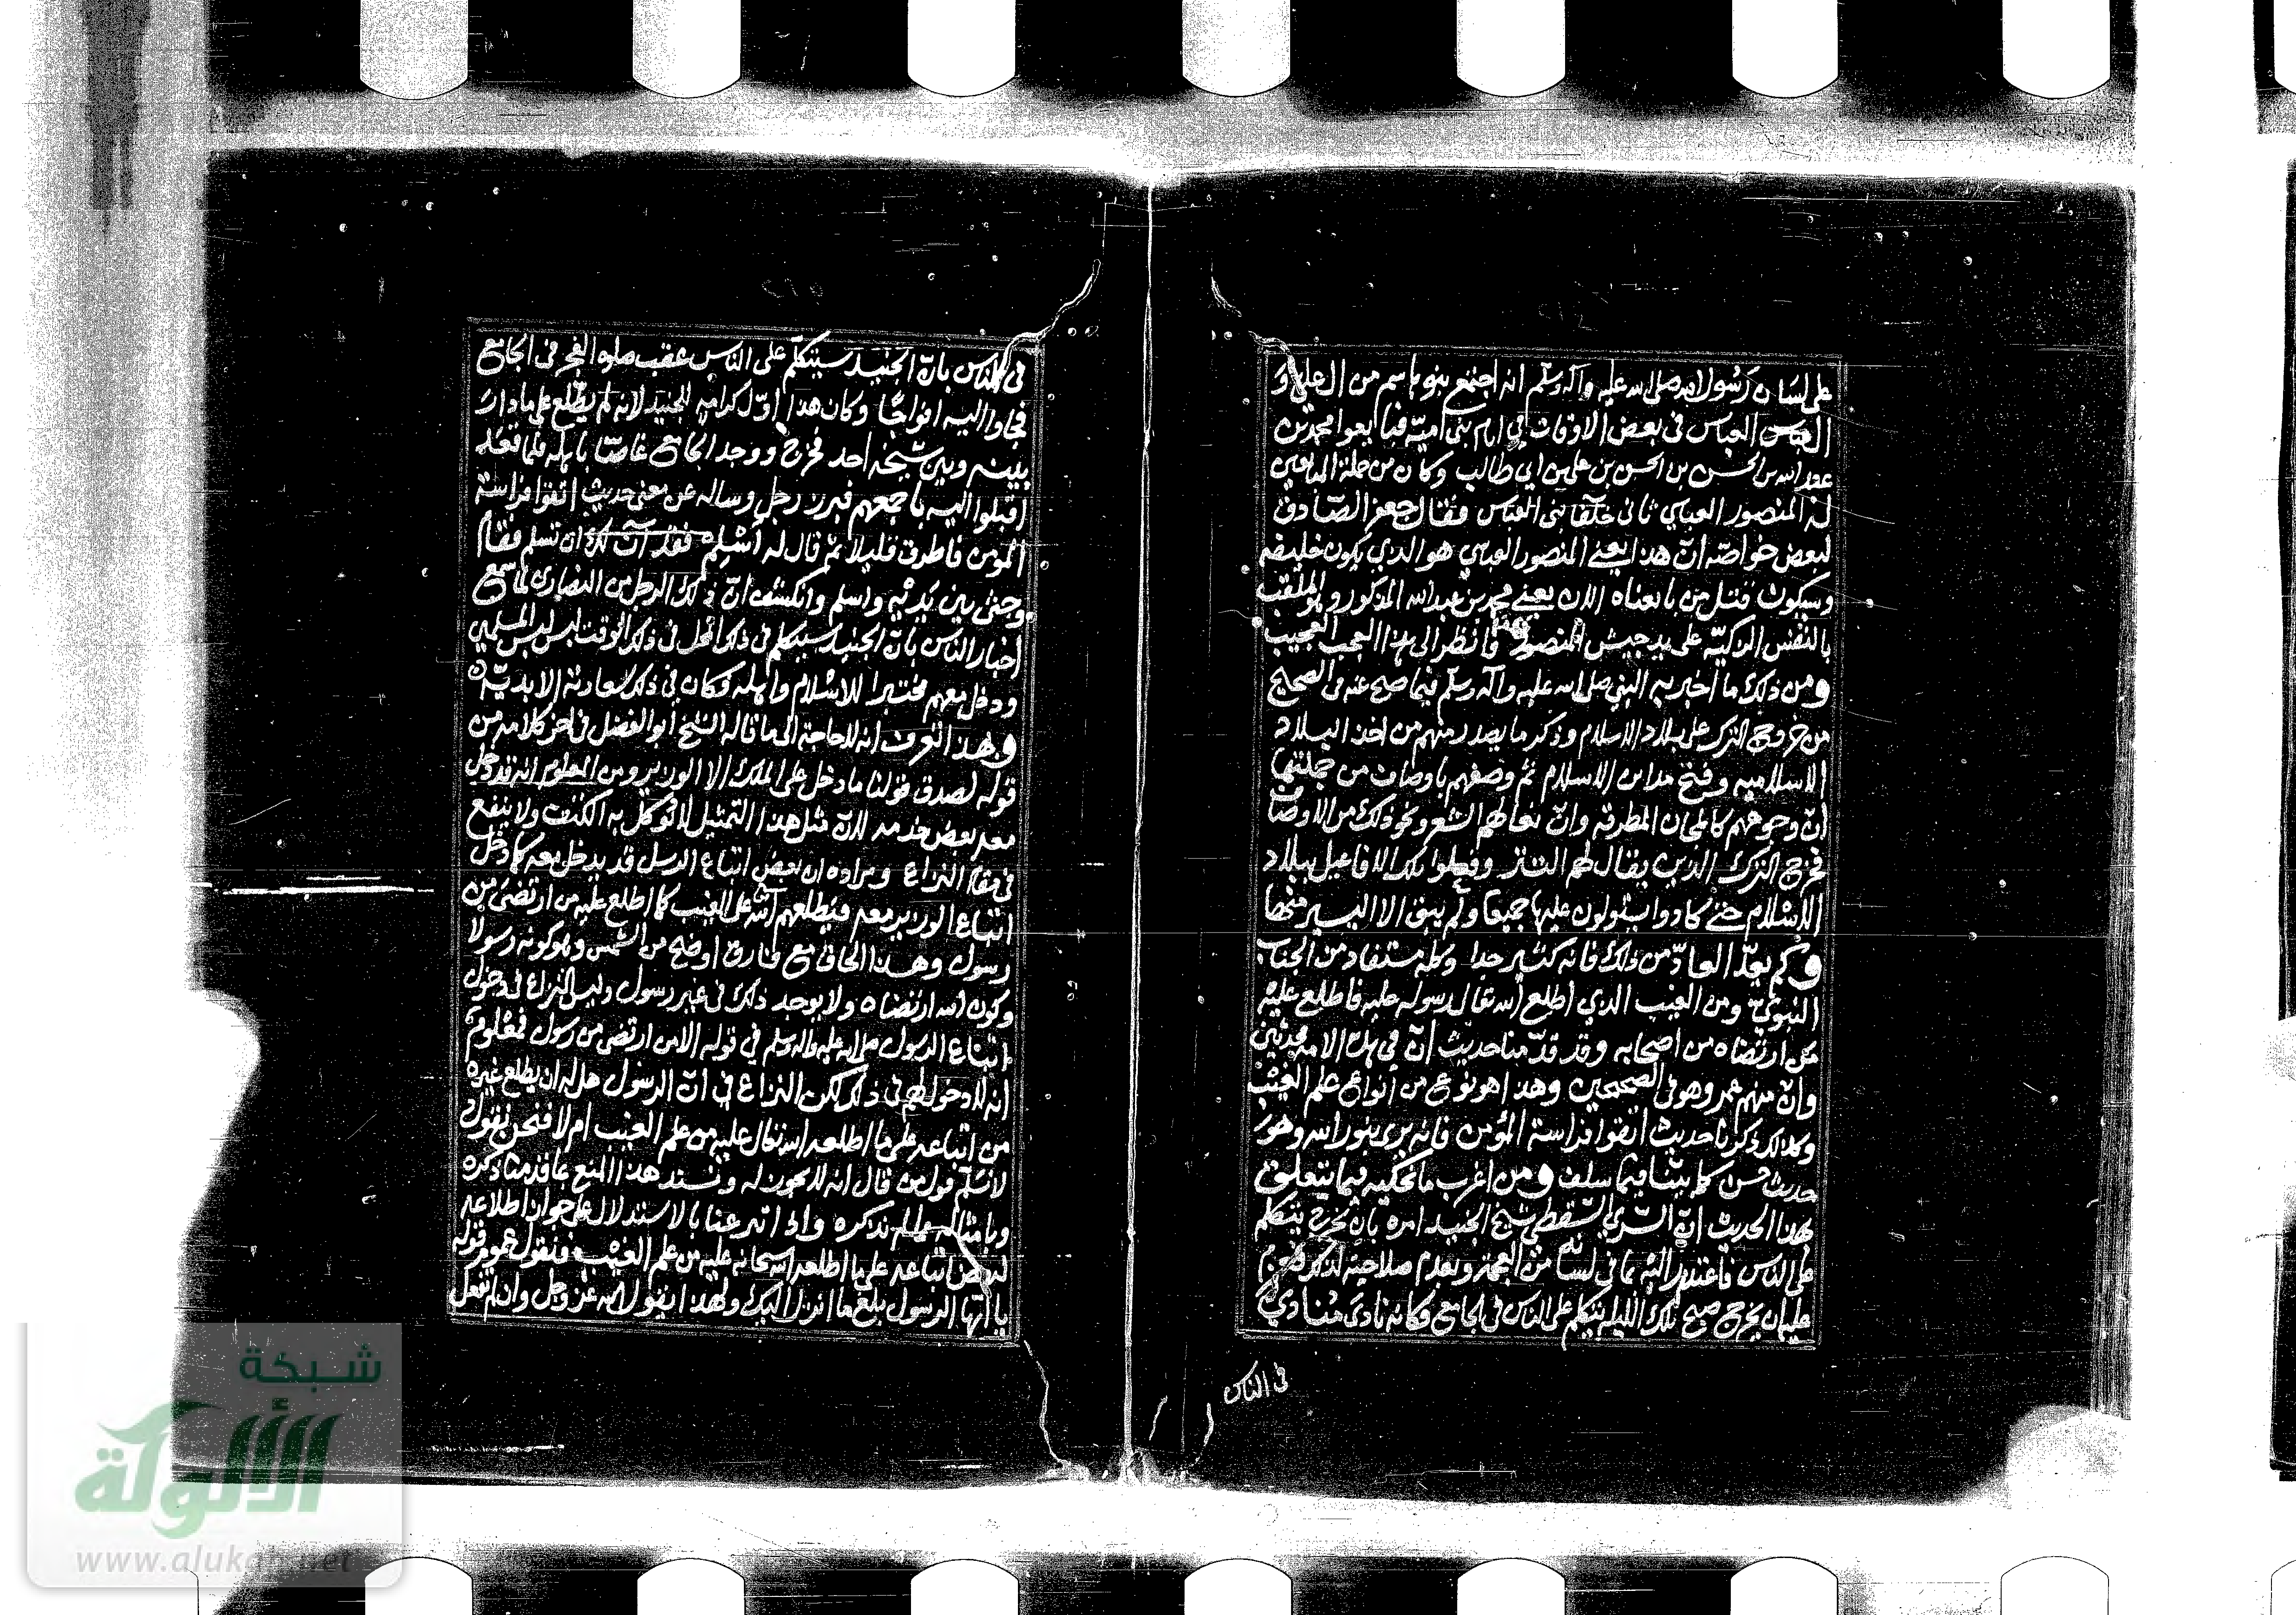 على لسان رسول الله صلى الله عليه وآله وسلم انه اجتمع بنو هاشم من العلي و
العباس في بعض الاوقات في ايام بني أمية فبايعوا محمد بن
عبد الله بن الحسن بن الحسن بن علي بن ابي طالب وكان من جملة المبايعين
له المنصور العباسي ثاني خلفا بني العباس فقال جعفر الصادق
لبعض خواصه انّ هذا يعني المنصور العباسي هو الذي يكون خليفه
وسيكون قتل من بايعناه الان يعني محمد بن عبد الله المذكور وهو الملقب
بالنفس الزكيّه على يد جيش المنصور فانظر الى هذا العجب العجيب
ومن ذلك ما أخبر به النبي صلى الله عليه وآله وسلم فيما صح عنه في الصحيح
من خروج الترك على بلاد الاسلام وذكر ما يصدر منهم من اخذ البلاد
الاسلاميه وفتح مداين الاسلام ثم وصفهم باوصاف من جملتها
ان وجوههم كالمجان المطرقه وانّ نعالهم الشعر ونحو ذلك من الاوصاف
فخرج الترك الذين يقال لهم التتر وفعلوا تلك الافاعيل ببلاد
الاسلام حتى كادوا يستولون عليها جميعا ولم يبق الا اليسير منها
وكم يعدّ العادّ من ذلك فانه كثير جدا وكله مستفاد من الجناب
النبويّ ومن الغيب الذي اطلع الله تعالى رسوله عليه فاطلع عليه
من ارتضاه من أصحابه وقد قدّمنا حديث انّ في هذه الامه محدثين
وانّ منهم عمر وهو في الصحيحين وهذا هو نوع من أنواع علم الغيب
وكذلك ذكرنا حديث اتقوا فراسة المؤمن فانه يرى بنور الله وهو
حديث حسن كما بيّنا فيما سلف ومن اغرب ما نحكيه فيما يتعلق
بهذا الحديث انّ السّري السقطي شيخ الجنيد امره بان يخرج يتكلم
على الناس فاعتذر اليه بما في لسانه من العجمة وبعدم صلاحيته لذلك فعزم
عليه ان يخرج صبح تلك الليله يتكلم على الناس في الجامع فكانه نادى منادي
في الناس
في الناس بانّ الجنيد سيتكلم على الناس عقب صلوة الفجر في الجامع
فجاوا اليه افواجًا وكان هذا اوّل كرامه للجنيد لانه لم يطلع على ما دار
بينه وبين شيخه أحد فخرج ووجد الجامع غاصّا باهله فلما فعل
اقبلوا اليه باجمعهم فبرز رجل وساله عن معنى حديث اتقوا فراسة
المؤمن فاطرق قليلا ثم قال له أسْلِم فقد آن لك ان تسلم فقام
وجثى بين يديه واسلم وانكشف انّ ذلك الرجل من النصارى لما سمع
اخبار الناس بانّ الجنيد سيتكلم في ذلك المحل في ذلك الوقت لبس لبس المسلمين
ودخل معهم مختبرا للاسلام واهله فكان في ذلك سعادته الابديّه
وهذا تعرف انه لا حاجة الى ما قاله الشيخ ابو الفضل في اخر كلامه من
قوله لصدق قولنا ما دخل على الملك الا الوزير ومن المعلوم انه قد دخل
معه بعض خدمه لانّ مثل هذا التمثيل لا توكل به الكتف ولا ينفع
في مقام النزاع ومراده ان بعض اتباع الرسل قد يدخل معه كما دخل
اتباع الوزير معه فيطلعهم الله على الغيب كما اطلع عليه من ارتضى من
رسول وهذا الحاق مع فارق اوضح من الشمس وهو كونه رسولا
وكون الله ارتضاه ولا يوجد ذلك في غير رسول وليس النزاع في دخول
اتباع الرسول صلى الله عليه واله وسلم في قوله الا من ارتضى من رسول فمعلوم
انه لا دخول لهم في ذلك لكن النزاع في انّ الرسول هل له ان يطلع غيره
من اتباعه على ما اطلعه الله تعالى عليه من علم الغيب ام لا فنحن نقول
لا نسلّم قول من قال انه لا يجوز له ونسند هذا المنع بما قدمنا ذكره
وبامثاله مما لم نذكره واذا تبرعنا بالاستدلال على جواز اطلاعه
لبعض اتباعه على ما اطلعه الله سبحانه عليه من علم الغيب فنقول عموم قوله
يا ايها الرسول بلغ ما انزل اليك ولهذا يقول الله عز وجل وان لم تفعل
شبكة
الألوكة
www.alukah.net